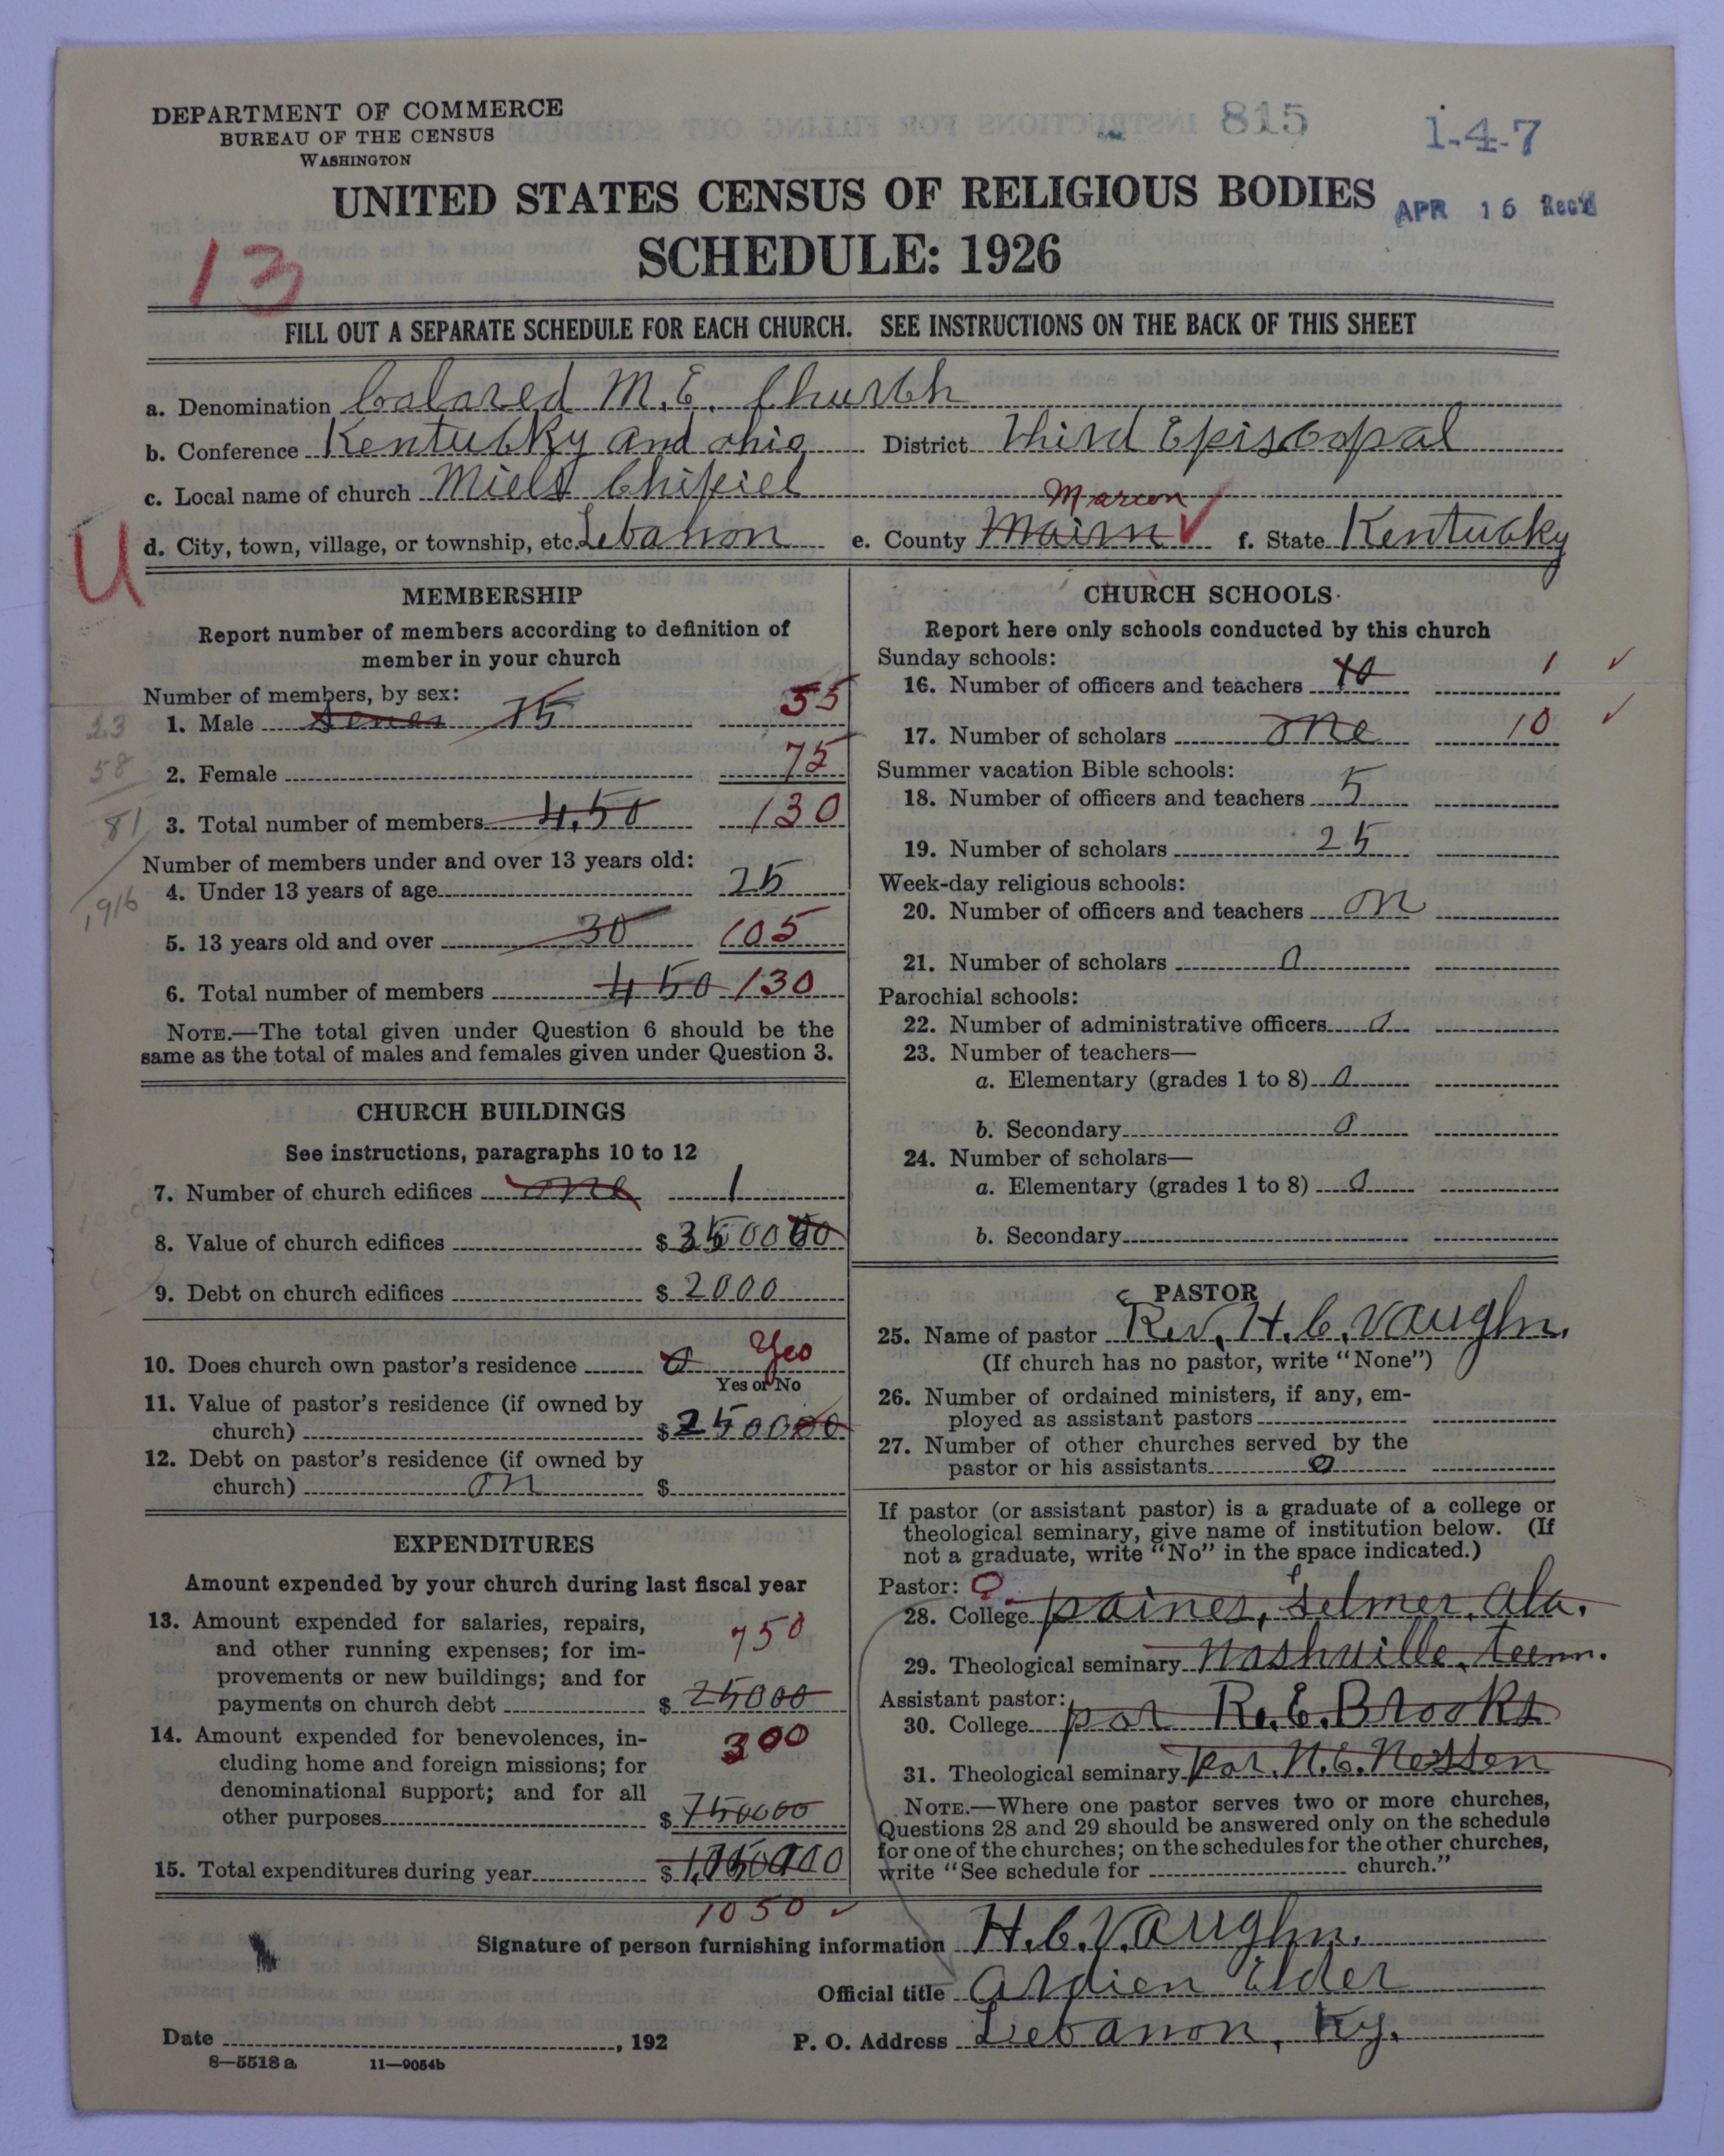 DEPARTMENT OF COMMERCE
BUREAU OF THE CENSUS
WASHINGTON
815
1-4-7
UNITED STATES CENSUS OF RELIGIOUS BODIES
APR 16 Rec'd
SCHEDULE: 1926
13
FILL OUT A SEPARATE SCHEDULE FOR EACH CHURCH. SEE INSTRUCTIONS ON THE BACK OF THIS SHEET
a. Denomination Colored M.E. Church
b. Conference Kentucky and ohio District Third Episcopal
c. Local name of church Miels Chipiel
Marion
d. City, town, village, or township, etc. Lebanon e. County Mairn f. State Kentucky
U
MEMBERSHIP
Report number of members according to definition of
member in your church
Number of members, by sex:
1. Male 75 55
2. Female 75
3. Total number of members 450 130
23
58
81
1916
Number of members under and over 13 years old:
4. Under 13 years of age 25
5. 13 years old and over 30 105
6. Total number of members 450 130
NOTE.—The total given under Question 6 should be the
same as the total of males and females given under Question 3.
CHURCH BUILDINGS
See instructions, paragraphs 10 to 12
7. Number of church edifices one 1
8. Value of church edifices $ 350000
9. Debt on church edifices $ 2000
10. Does church own pastor's residence 0 Yes
Yes or No
11. Value of pastor's residence (if owned by
church) $ 250000
12. Debt on pastor's residence (if owned by
church) on $
EXPENDITURES
Amount expended by your church during last fiscal year
13. Amount expended for salaries, repairs,
and other running expenses; for im-
provements or new buildings; and for
payments on church debt $ 25000
750
14. Amount expended for benevolences, in-
cluding home and foreign missions; for
denominational support; and for all
other purposes $ 750000
300
15. Total expenditures during year $
1050
CHURCH SCHOOLS
Report here only schools conducted by this church
Sunday schools:
16. Number of officers and teachers 10 1
17. Number of scholars one 10
Summer vacation Bible schools:
18. Number of officers and teachers 5
19. Number of scholars 25
Week-day religious schools:
20. Number of officers and teachers on
21. Number of scholars 0
Parochial schools:
22. Number of administrative officers 0
23. Number of teachers—
a. Elementary (grades 1 to 8) 0
b. Secondary 0
24. Number of scholars—
a. Elementary (grades 1 to 8) 0
b. Secondary
PASTOR
25. Name of pastor Rev. H. C. Vaughn.
(If church has no pastor, write "None")
26. Number of ordained ministers, if any, em-
ployed as assistant pastors
27. Number of other churches served by the
pastor or his assistants 0
If pastor (or assistant pastor) is a graduate of a college or
theological seminary, give name of institution below. (If
not a graduate, write "No" in the space indicated.)
Pastor:
28. College paines, Selmer, Ala.
29. Theological seminary Nashville, teenn.
Assistant pastor:
30. College par R. E. Brooks
31. Theological seminary par. N. C. Nessen
NOTE.—Where one pastor serves two or more churches,
Questions 28 and 29 should be answered only on the schedule
for one of the churches; on the schedules for the other churches,
write "See schedule for church."
Signature of person furnishing information H. C. Vaughn.
Official title Ardien Elder
Date , 192 P. O. Address Lebanon, Ky.
8—5518 a 11—9054b